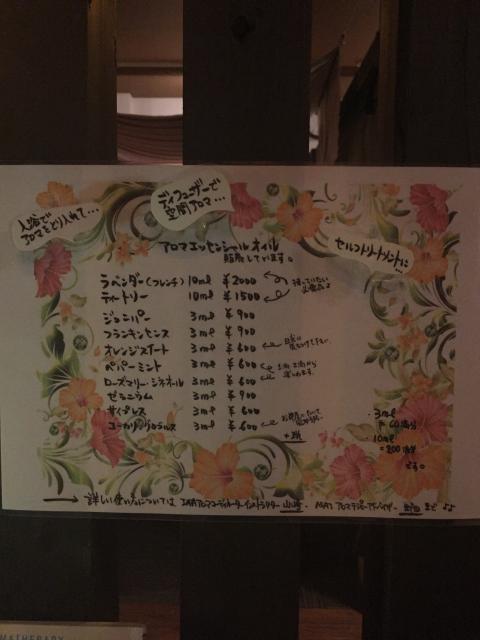 入浴で
アロマをとり入れて...
ディフューザーで
空間アロマ...
セルフトリートメントに...
アロマエッセンシャルオイル
販売しています。
ラベンダー(フレンチ) 10ml ¥2000
ティートリー 10ml ¥1500
持っていたい
必需品♪
ジュニパー 3ml ¥900
フランキンセンス 3ml ¥900
オレンジスイート 3ml ¥600
ペパーミント 3ml ¥600
ローズマリー・シネオール 3ml ¥600
ゼラニウム 3ml ¥900
サイプレス 3ml ¥600
ユーカリ・グロブルス 3ml ¥600
・3ml
= 60滴分
10ml
= 200滴分
です。
→ 詳しい使い方については アロマコーディネーター インストラクター 山崎、 アロマテラピーアドバイザー まで ♪♪
MATHERAPY